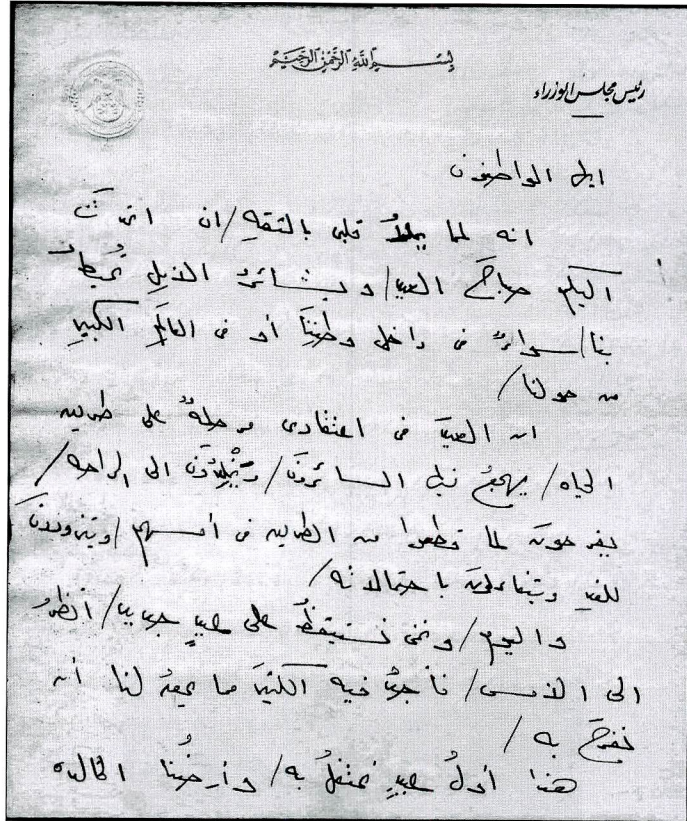 بسم الله الرحمن الرحيم
رئيس مجلس الوزراء
ايها المواطنون
انه لما يملأُ قلبى بالثقةِ / ان اتحدثَ
اليكم صباحَ العيد / وبشائرُ الأملِ تحيطُ
بنا / سواءٌ فى داخل وطنِنَا أو فى العالَمِ الكبيرِ
من حولنا /
ان العيدَ فى اعتقادى مرحلةٌ على طريق
الحياه / يهجعُ فيها السائرونَ / ويَخْلِدُونَ الى الراحه /
يفرحون لما قطعوا من الطريق فى أمسهم / ويتزودونَ
للغدِ ويتفاءلون باحتمالاته /
واليوم / ونحن نستيقظُ على عيدٍ جديد / أنظرُ
الى الأمس / فأجدُ فيه الكثيرَ مما يحقُ لنا أن
نفرحَ به /
هذا أولُ عيدٍ نحتفلُ به / وأرضُنا خالصه